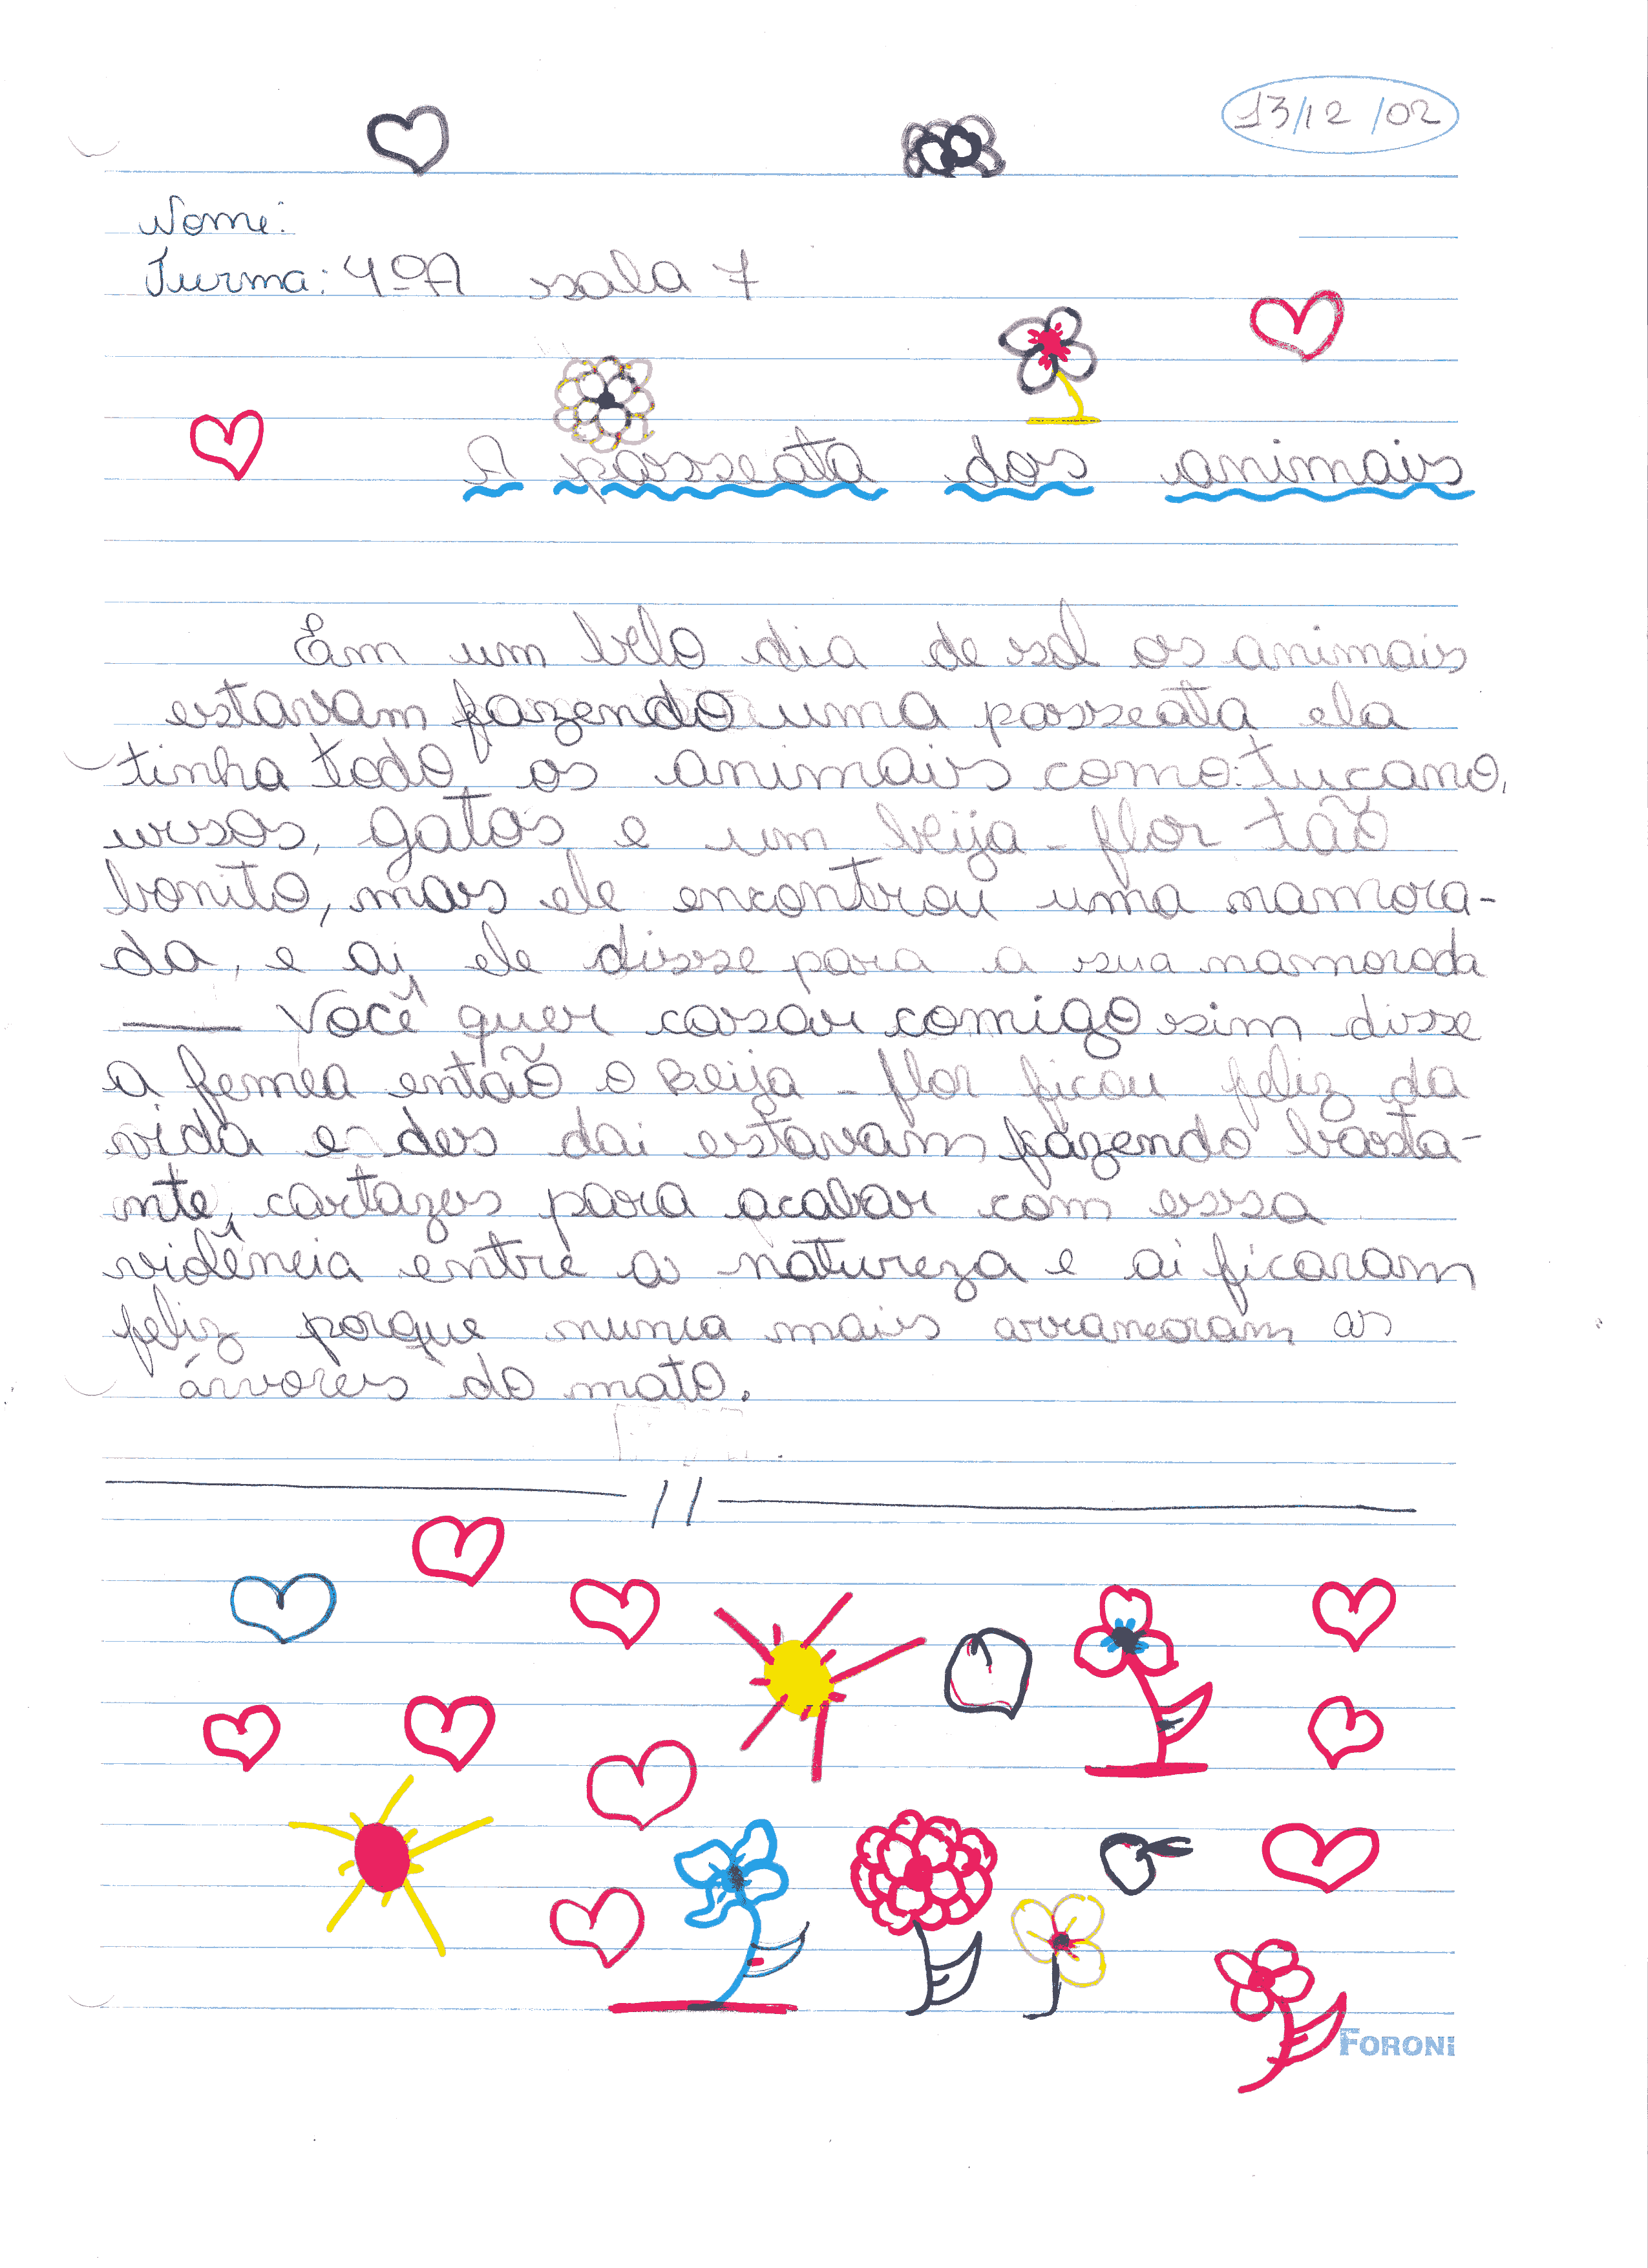 13/12/02
Nome:
Turma: 4ºA sala 7
A passeata dos animais
Em um belo dia de sol os animais
estavam fazendo uma passeata ela
tinha todo os animais como: tucano,
ursos, gatos, e um beija-flor tão
bonito, mais ele encontrou uma namora-
da, e ai, ele disse para a sua namorada
— Você quer casar comigo sim disse
a femea então o Beija-flor ficou feliz da
vida e des dai estavam fazendo basta-
nte, cartazes para acabar com essa
vidência entre a natureza e ai ficaram
feliz porque nunca mais arrancaram as
árvores do mato.
FORONI